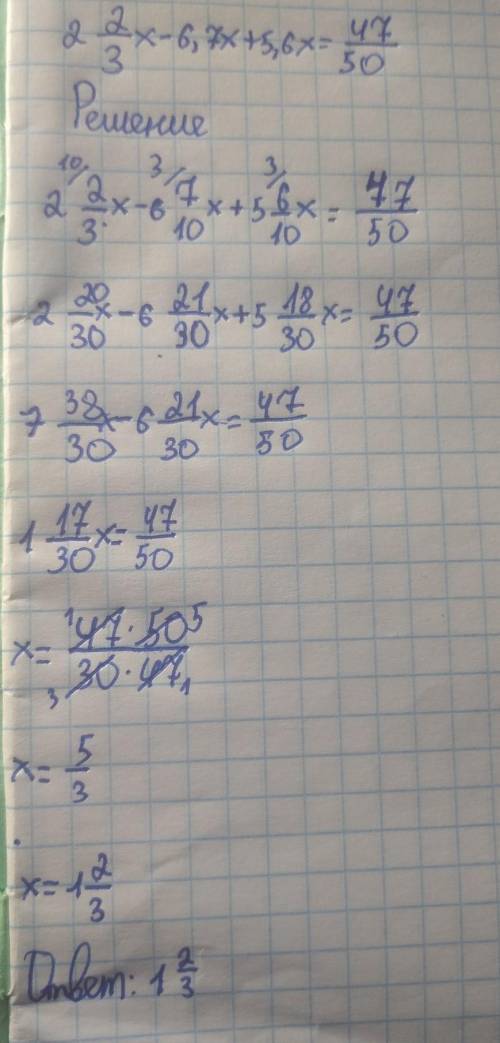 2 2/3 x - 6,7x + 5,6x = 47/50
Решение
2 2/3 10/ x - 6 7/10 3/ x + 5 6/10 3/ x = 47/50
2 20/30 x - 6 21/30 x + 5 18/30 x = 47/50
7 38/30 x - 6 21/30 x = 47/50
1 17/30 x = 47/50
x = 1 47 · 50 5 / 3 30 · 47 1
x = 5/3
x = 1 2/3
Ответ: 1 2/3